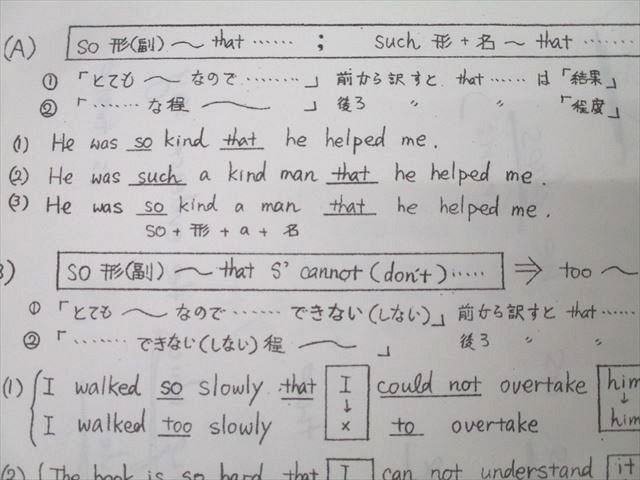 (A) so 形(副) 〜 that …… ; such 形 + 名 〜 that ……
① 「とても 〜 なので ………」 前から訳すと that …… は 「結果」
② 「…… な程 〜 」 後ろ 〃 〃 「程度」
(1) He was so kind that he helped me.
(2) He was such a kind man that he helped me.
(3) He was so kind a man that he helped me.
so + 形 + a + 名
B) so 形(副) 〜 that S' cannot (don't) …… ⇒ too 〜
① 「とても 〜 なので …… できない(しない)」 前から訳すと that ……
② 「…… できない(しない)程 〜 」 後ろ 〃 〃
(1) I walked so slowly that I could not overtake him
↓ ↓
I walked too slowly × to overtake him
(2) The book is so hard that I can not understand it